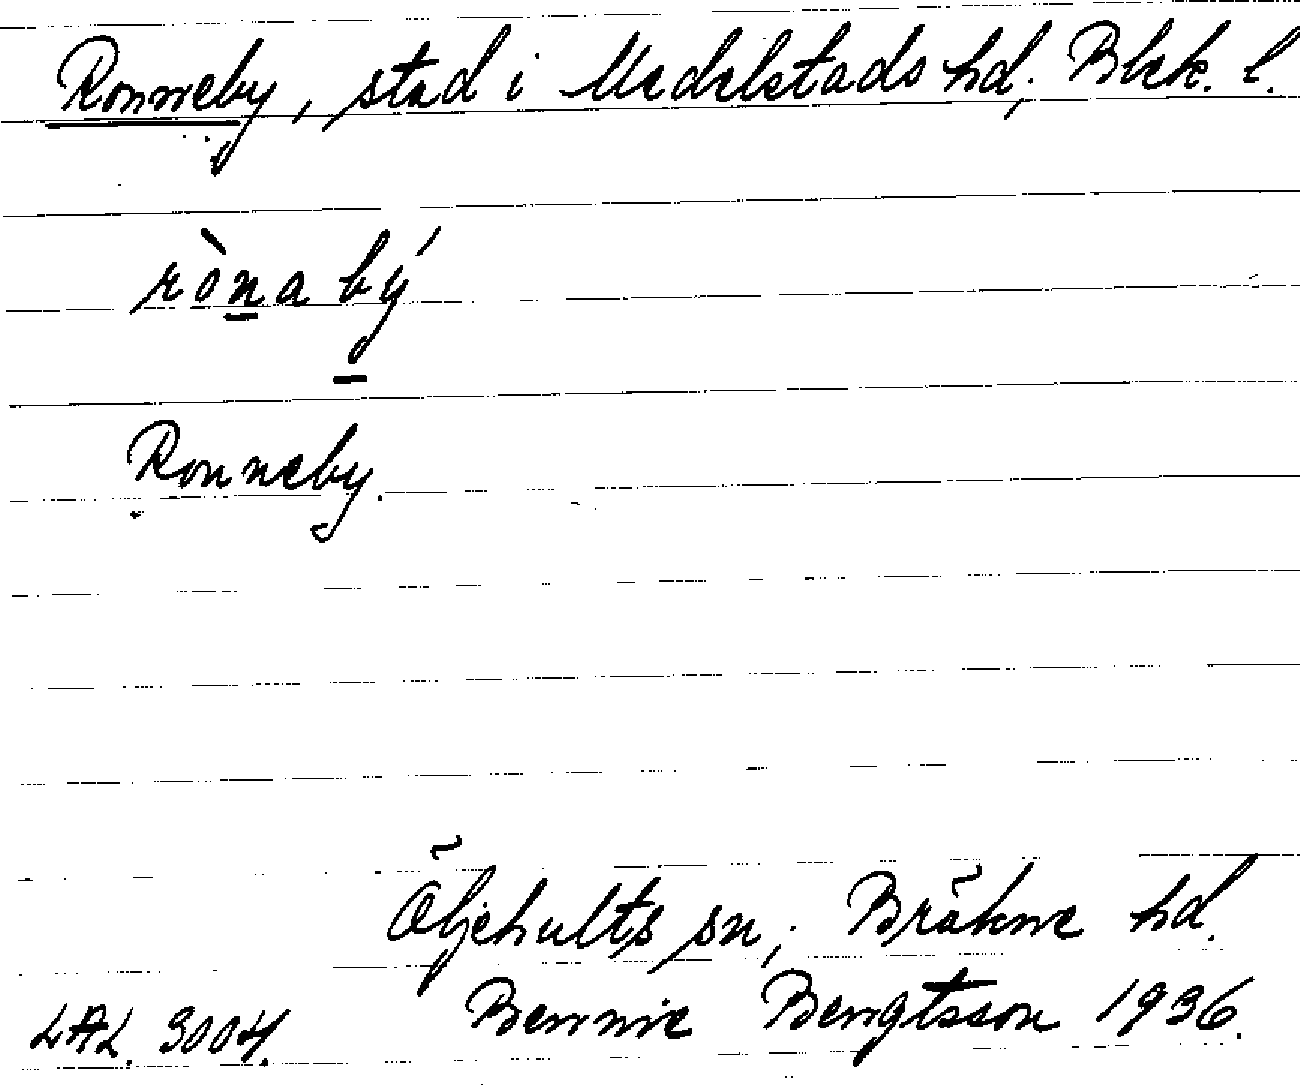 Ronneby, stad i Medelstads hd; Blek. l.
ròn̲a bý̲
Ronneby.
Öljehults sn; Bräkne hd.
LAL. 3004. Bennie Bengtsson 1936.